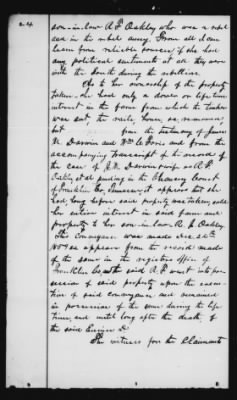 son-in-law A. F. Oakley who was a rebel
in the rebel army. From all I can
learn from reliable sources, if she had
any political sentiments at all they were
with the South during the rebellion.
As to her ownership of the property
taken, she had only a dower or life time
interest in the farm from which the timber
was cut, the
but from the testimony of James
H. Darwin and Wm and from the
accompanying transcript of the record of
the case of J. H. Darwin vs A. F.
Oakley et al pending in the Chancery Court
of Franklin Co, Tennessee, it appears that she
had, long before said property was taken, sold
her entire interest in said farm and
property to her son in law A. F. Oakley.
This conveyance was made Dec.
as appears from the record made
of the same in the registers office of
Franklin Co, and the said A. F. went into pos-
session of said property upon the execu-
tion of said conveyance and remained
in possession of the same during the life
time, and until long after the death of
the said
The witness for the Claimants